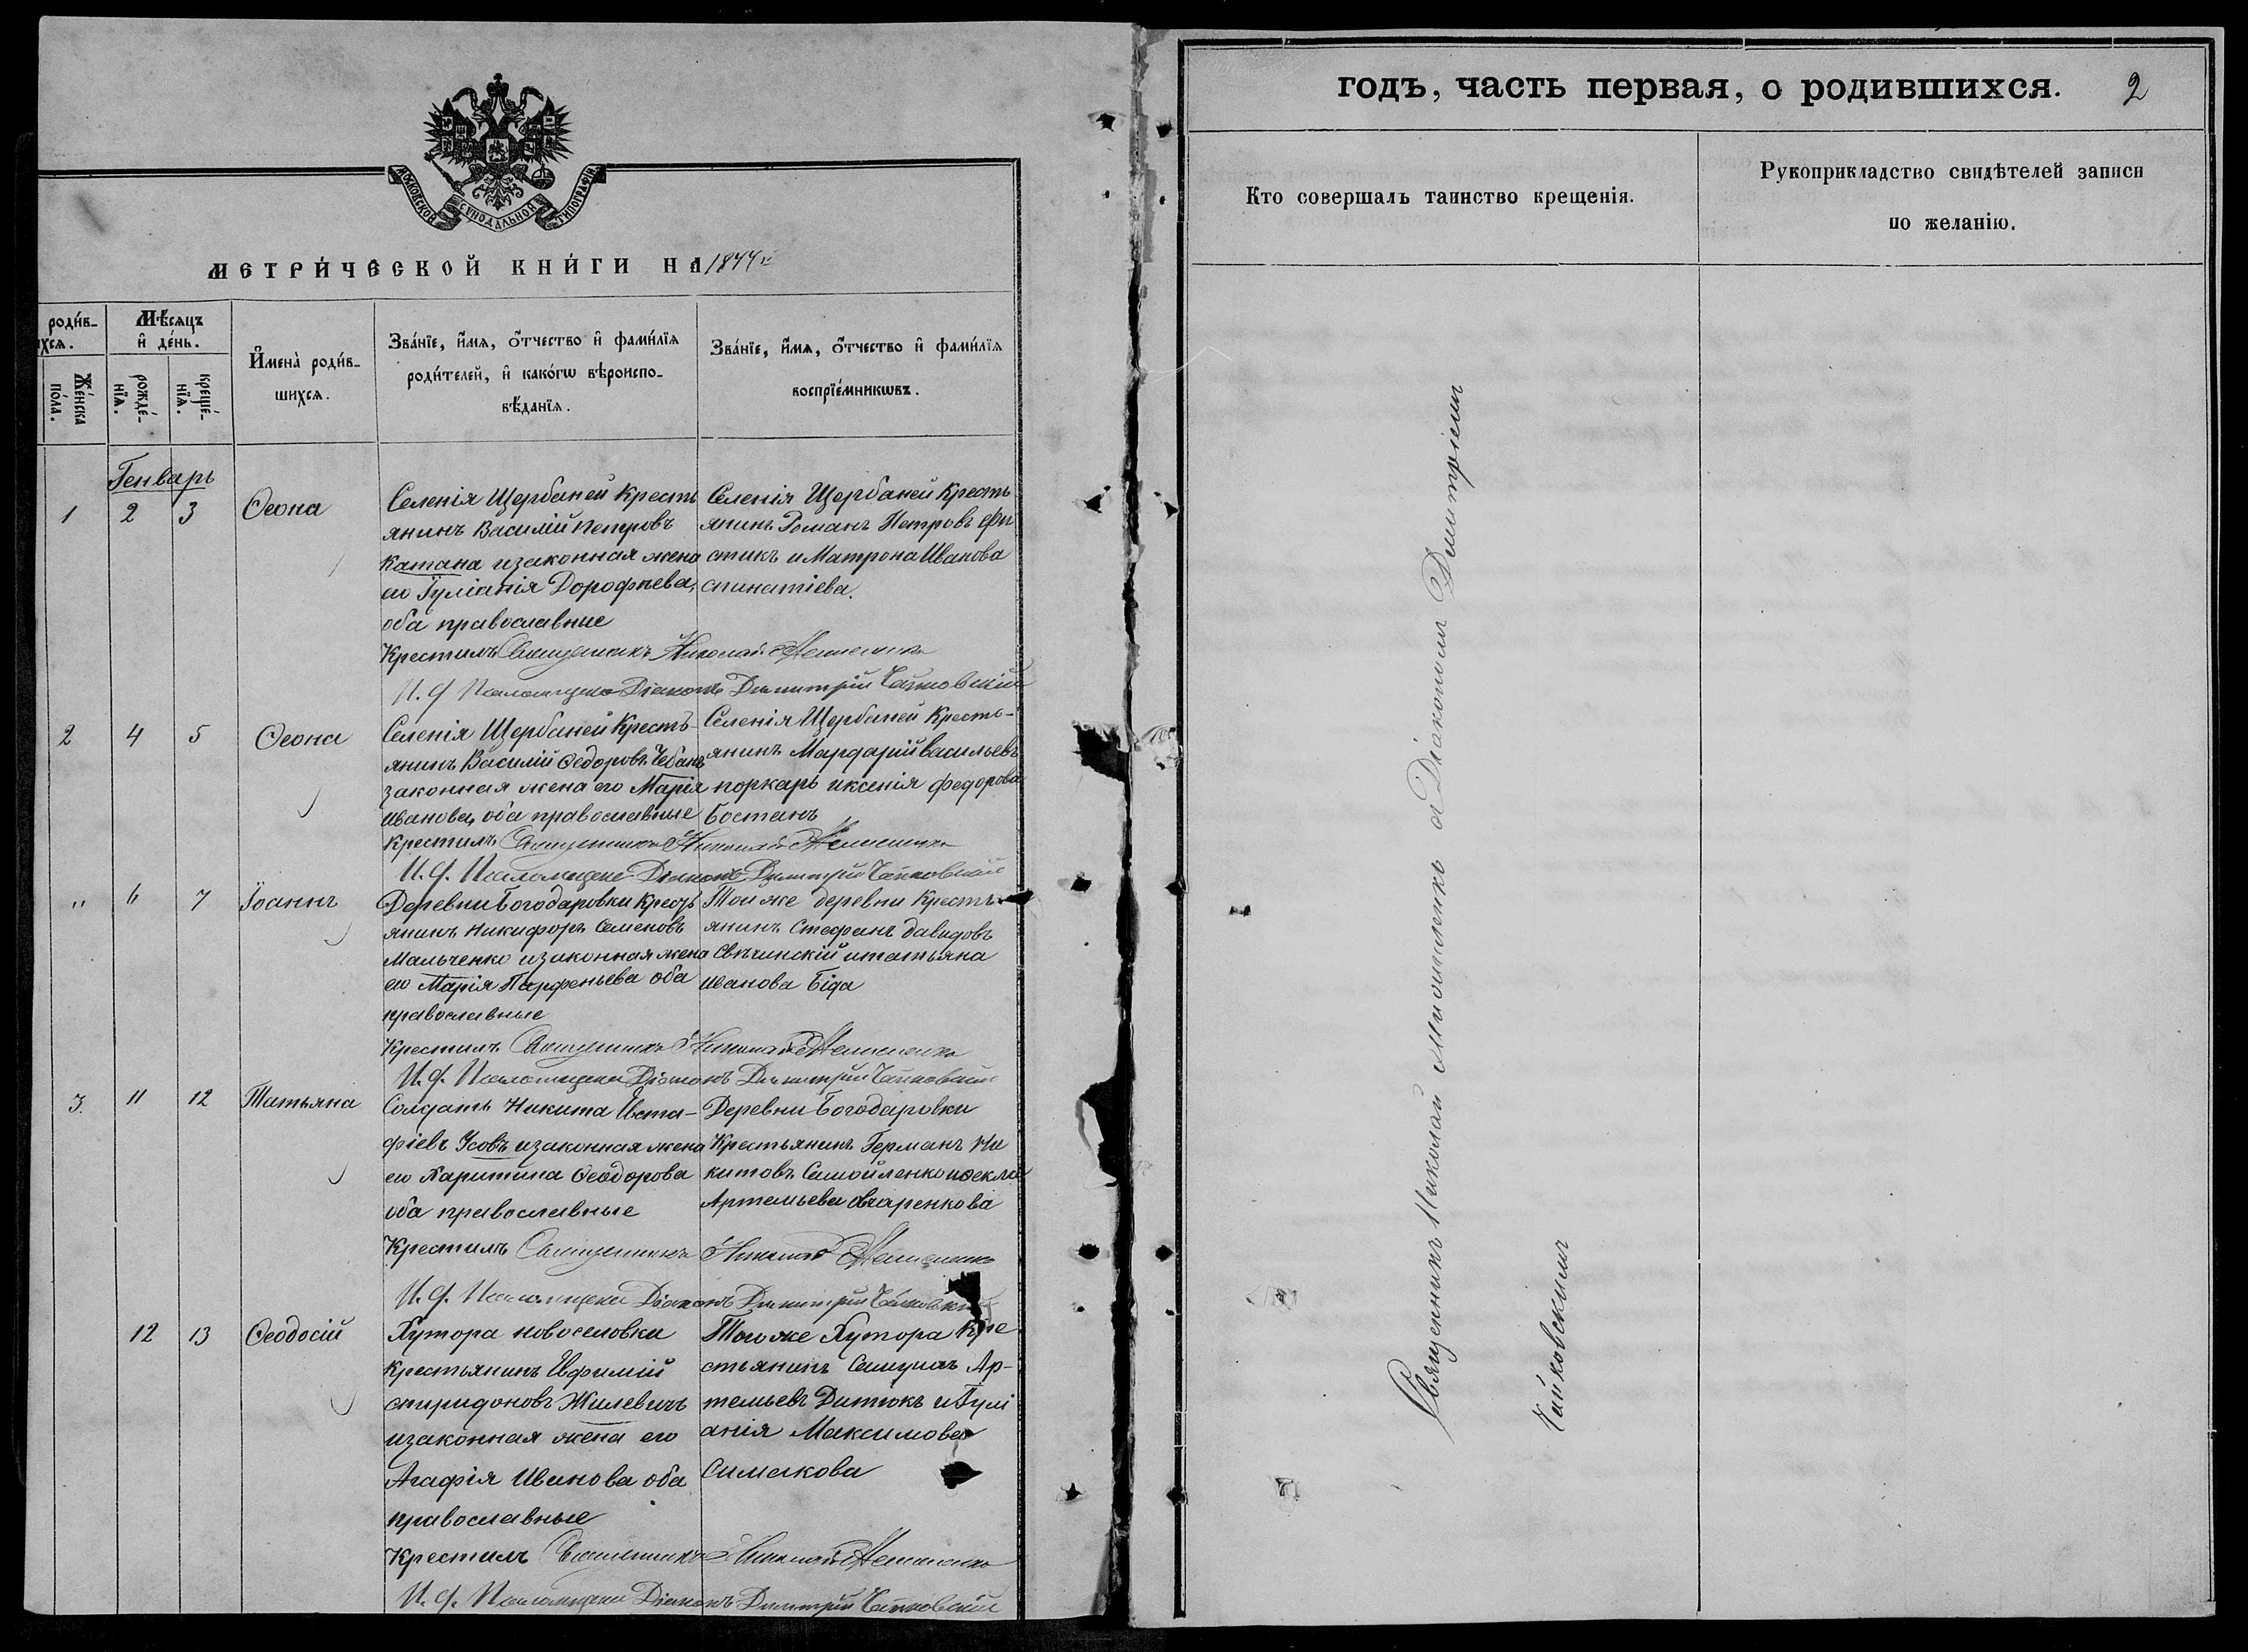 МОСКОВСКОЙ СѴНОДАЛЬНОЙ ТИПОГРАФІИ
МЕТРИ́ЧЕСКОЙ КНИ́ГИ НА
роди́в-
ихсѧ.
Же́нска
по́ла.
Мѣ́сѧцъ
и҆ де́нь.
рожде́-
нїѧ.
креще́-
нїѧ.
И҆мена̀ роди́в-
шихсѧ.
Зва́нїе, и҆́мѧ, о҆́тчество и҆ фами́лїѧ
роди́телей, и҆ како́гѡ вѣроиспо-
вѣ́данїѧ.
Зва́нїе, и҆́мѧ, о҆́тчество и҆ фами́лїѧ
воспрїе́мникѡвъ.
Генварь
1 2 3 Ѳеона
Селенія Щербаней Кресть
янинъ Василій Петровъ
Катана изаконная жена
его Іуліанія Дорофѣева,
оба православные
Селенія Щербаней Кресть
янинъ Романъ Петровъ Фи
стикъ и Матрона Иванова
спинатіева.
Крестилъ Священникъ Николай
И. д. Псаломщика Діаконъ Димитрій Чайковскій
2 4 5 Ѳеона
Селенія Щербаней Кресть-
янинъ Василій Ѳедоровъ Чебанъ
законная жена его Марія
иванова, оба православные
Селенія Щербаней Кресть-
янинъ Мардарій Васильевъ
поркарь иксенія федорова
бостанъ
Крестилъ Священникъ Николай
И. д. Псаломщика Діаконъ Димитрій Чайковскій
" 6 7 Іоаннъ
Деревни Богодаровки Кресть
янинъ Никифоръ Семеновъ
Мальченко изаконная жена
его Марія Парфеньева оба
православные
Тойже деревни Кресть
янинъ Стефанъ давидовъ
Свѣчинскій итатьяна
иванова Біда
Крестилъ Священникъ Николай
И. д. Псаломщика Діаконъ Димитрій Чайковскій
3. 11 12 Татьяна
Солдатъ Никита Иста-
фіевъ Усовъ изаконная жена
его Харитина Ѳеодорова
оба православные
Деревни Богодаровки
Крестьянинъ Германъ Ни
китовъ Самойленко иѳекла
Артемьева Овчаренкова
Крестилъ Священникъ Николай
И. д. Псаломщика Діаконъ Димитрій Чайковскій
12 13 Ѳеодосій
Хутора новоселовки
крестьянинъ Ефимій
спиридоновъ Жилевичъ
изаконная жена его
Агафія Иванова оба
православные
Тогоже Хутора Кре
стьянинъ Самуилъ Ар-
темьевъ Дитюкъ иІулі
анія Максимова
Симакова
Крестилъ Священникъ Николай
И. д. Псаломщика Діаконъ Димитрій Чайковскій
годъ, часть первая, о родившихся. 2
Кто совершалъ таинство крещенія.
Рукоприкладство свидѣтелей записи
по желанію.
Священникъ Николай съ Діакономъ Димитріемъ
Чайковскимъ